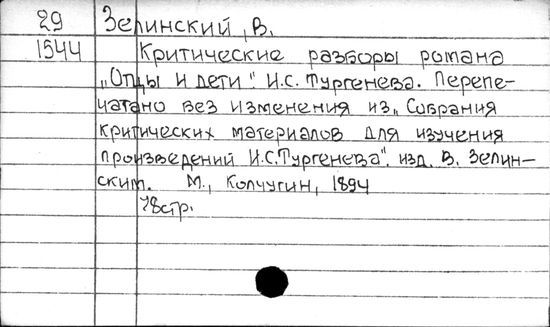 29 Зелинский, В.
1544 Критические разборы романа
„Отцы и дети". И.С. Тургенева. Перепе-
чатано без изменения из „Собрания
критических материалов для изучения
произведений И.С.Тургенева", изд. В. Зелин-
ским. М., Колчугин, 1894
78стр.